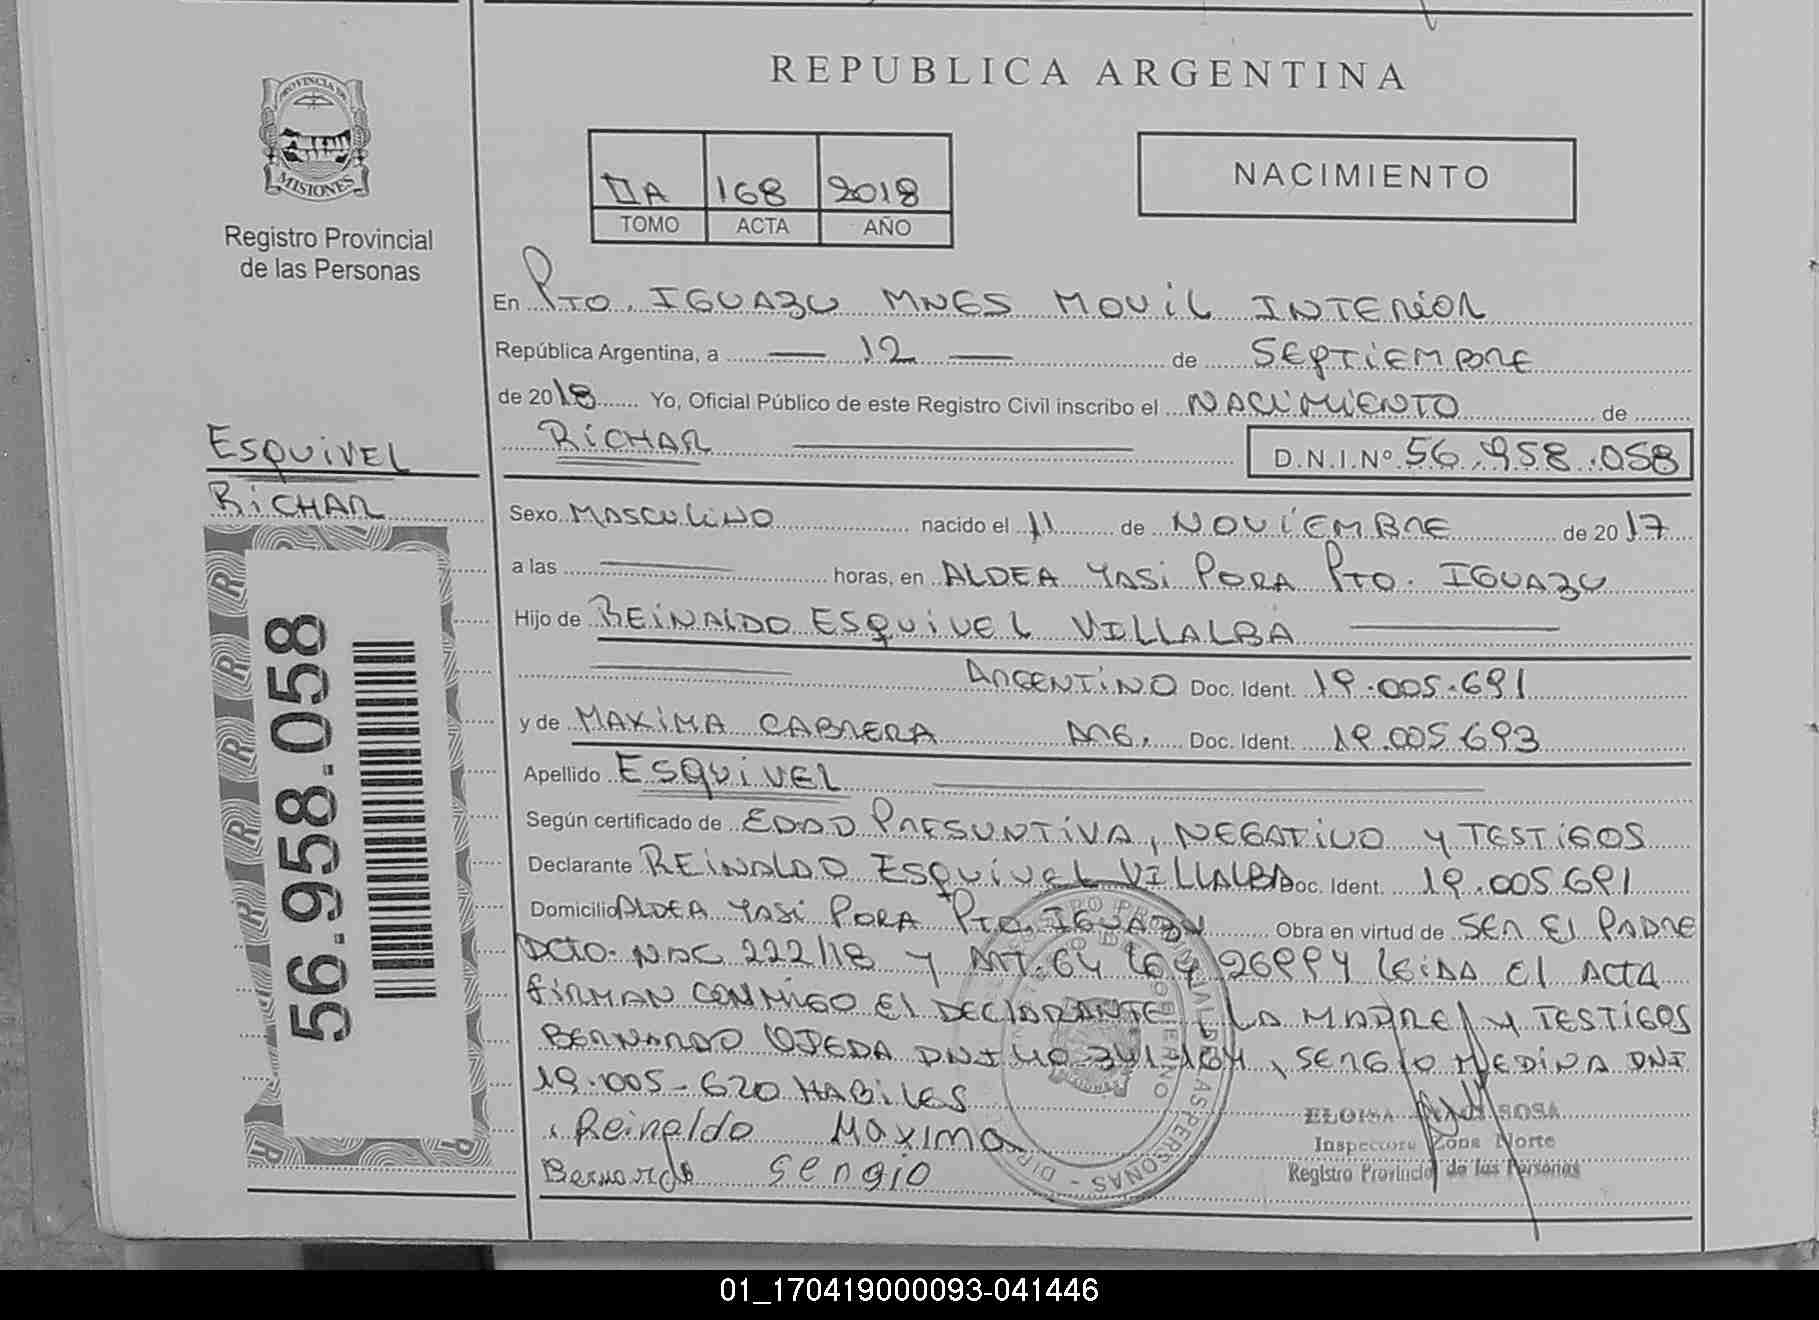 REPUBLICA ARGENTINA
PROVINCIA DE
MISIONES
Registro Provincial
de las Personas
IIA 168 2018
TOMO ACTA AÑO
NACIMIENTO
En Pto. IGUAZU MNES MOVIL INTERIOR
República Argentina, a 12 de SEPTIEMBRE
de 2018 Yo, Oficial Público de este Registro Civil inscribo el NACIMIENTO de
RICHAR D.N.I.Nº 56.958.058
ESQUIVEL
RICHAR
56.958.058
Sexo MASCULINO nacido el 11 de NOVIEMBRE de 2017
a las horas, en ALDEA YASI PORA Pto. IGUAZU
Hijo de REINALDO ESQUIVEL VILLALBA
ARGENTINO Doc. Ident. 19.005.691
y de MAXIMA CABRERA ARG. Doc. Ident. 19.005.693
Apellido ESQUIVEL
Según certificado de EDAD PRESUNTIVA, NEGATIVO Y TESTIGOS
Declarante REINALDO ESQUIVEL VILLALBA Doc. Ident. 19.005.691
Domicilio ALDEA YASI PORA Pto. IGUAZU Obra en virtud de SER EL PADRE
DCTO. NAC 222/18 Y ART. 64 LEY 26994 LEIDA EL ACTA
FIRMAN CONMIGO EL DECLARANTE, LA MADRE Y TESTIGOS
BERNARDO OJEDA DNI 40.341.184, SERGIO MEDINA DNI
19.005-620 HABILES
Reinaldo Maxima
Bernardo Sergio
ELOISA SOSA
Inspectora Zona Norte
Registro Provincial de las Personas
01_170419000093-041446